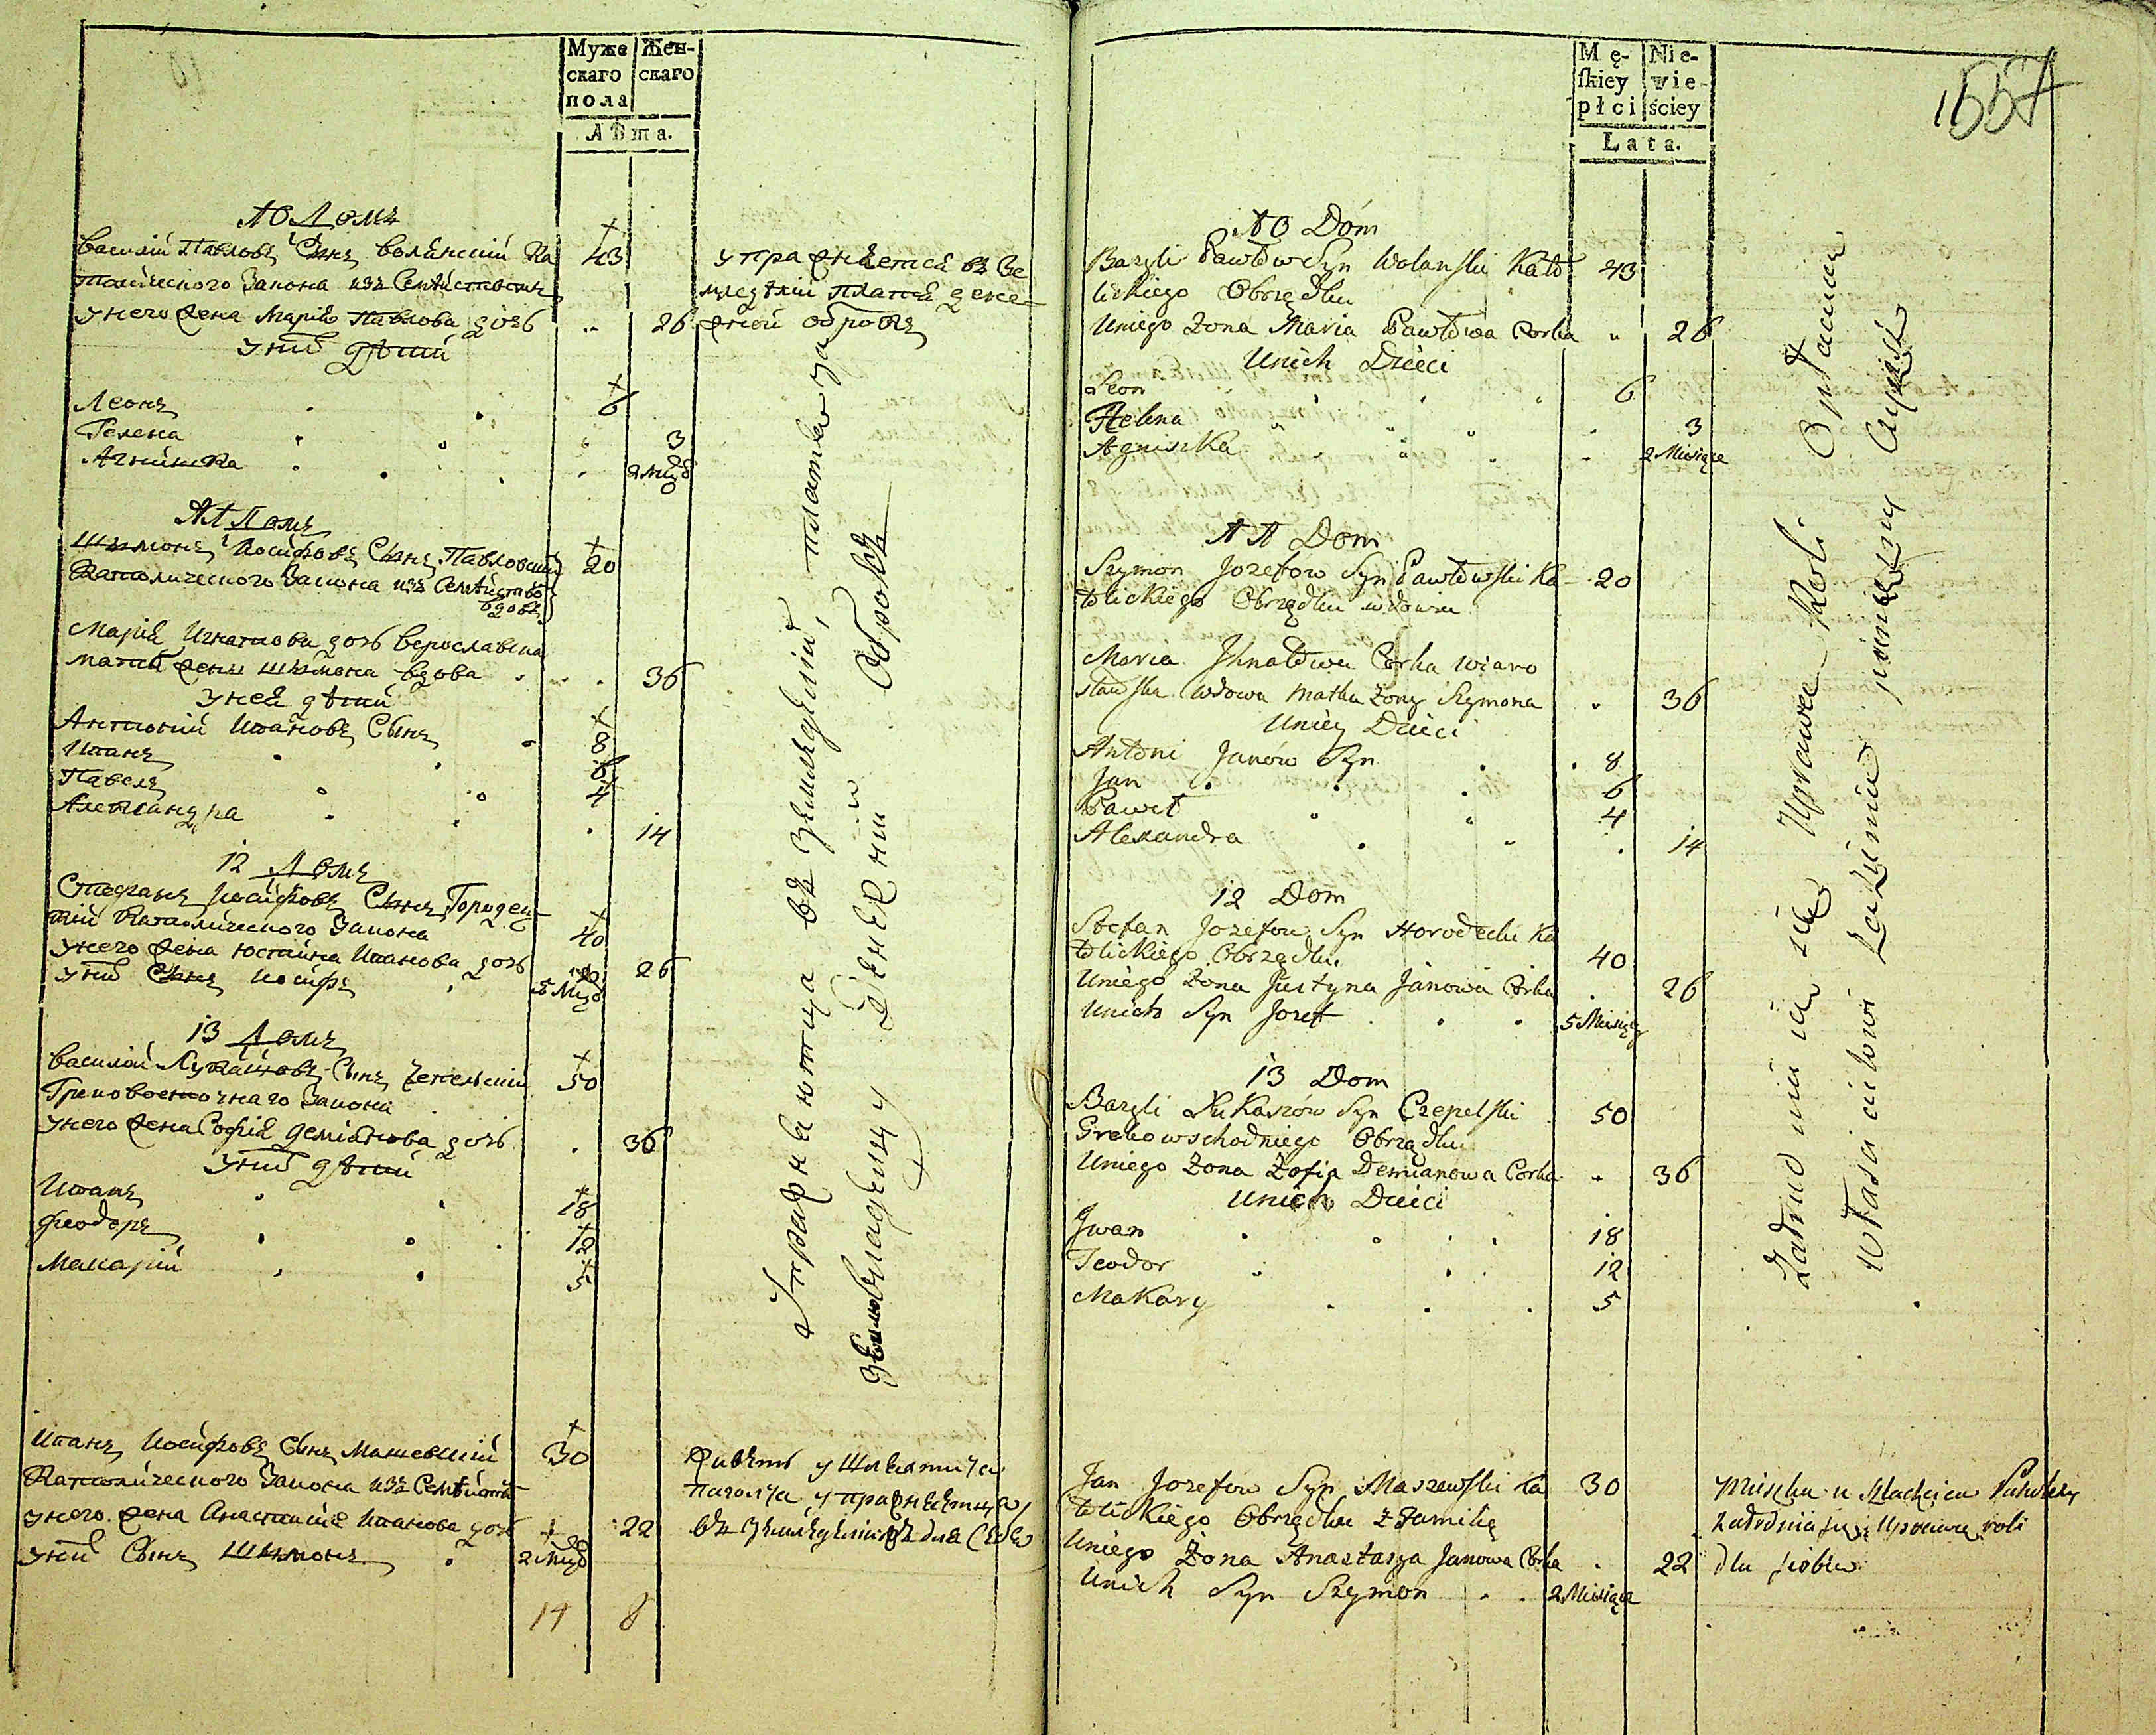 Муже
скаго
пола
Жен-
скаго
Лѣта.
10 Домъ
Василій Павловъ Сынъ Волянскій Ка
толическаго Закона изъ Семѣйствомъ
43
унего жена Марія Павлова дочь
26
уних дѣтий
Леонъ
6
Гелена
3
Агнишка
2 Мцъ
упражняется въ Зе
мледѣлій платя дене
жной оброкъ
11 Домъ
Шимонъ Иосифовъ Сынъ Павловский
20
Католического Закона изъ Семѣйства
вдовъ
Марія Игнатова дочь Верославска
матка жены Шимона вдова
36
уней дѣтий
Антоний Иванов Сынъ
8
Иванъ
6
Павелъ
4
Александра
14
12 Домъ
Стефанъ Иосифовъ Сынъ Городец
кий Католического Закона
40
унего жена Юстина Иванова дочь
26
уних Сынъ Иосифъ
5 Мцъ
13 Домъ
Василій Лукашовъ Сынъ Чепельский
50
Грековосточнаго Закона
унего жена Софія Деміанова дочь
36
уних дѣтий
Иванъ
18
Феодоръ
12
Макарій
5
Упражняются въ Земледѣлій, платя за
Землевладѣльцу Денежний Оброкъ
Иванъ Иосифовъ Сынъ Машевский
30
Католического Закона изъ Семѣйства
унего жена Анастасія Иванова дочь
22
уних Сынъ Шимонъ
2 Мцъ
Живетъ у Шляхтича
упражняется
въ Земледѣлии для Себе
14 8
Mę-
skiey
płci
Nie-
wie-
ściey
Lata.
1557
10 Dóm
Bazyli Pawłow Syn Wolanski Kato
43
lickiego Obrządku
Uniego Zona Maria Pawłowa Corka
26
Unich Dzieci
Leon
6
Helena
3
Agniszka
2 Miesiące
11 Dom
Szymon Jozefow Syn Pawłowski Ka-
20
tolickiego Obrządku wdowiec
Maria Ihnatowa Corka Wiaro
sławska wdowa matka żony Szymona
36
Uniey Dzieci
Antoni Janów Syn
8
Jan
6
Paweł
4
Alexandra
14
12 Dom
Stefan Jozefow Syn Horodecki Ka
tolickiego Obrządku
40
Uniego Zona Justyna Janowa Corka
26
Unich Syn Jozef
5 Miesięcy
13 Dom
Bazyli Łukaszów Syn Czepelski
50
Grekowschodniego Obrządku
Uniego Zona Zofia Demianowa Corka
36
Unich Dzieci
Jwan
18
Teodor
12
Makary
5
Zatrudniaią się Uprawą Roli. Opłacaiąc
właścicielowi Zaziemię pieniężny Czynsz
Jan Jozefow Syn Maszewski Ka
30
tolickiego Obrządku z Familią
Uniego Zona Anastazya Janowa Corka
22
Unich Syn Szymon
2 Miesiące
Mieszka u Szlachcica
Zatrudnia się Uprawą roli
dla siebie